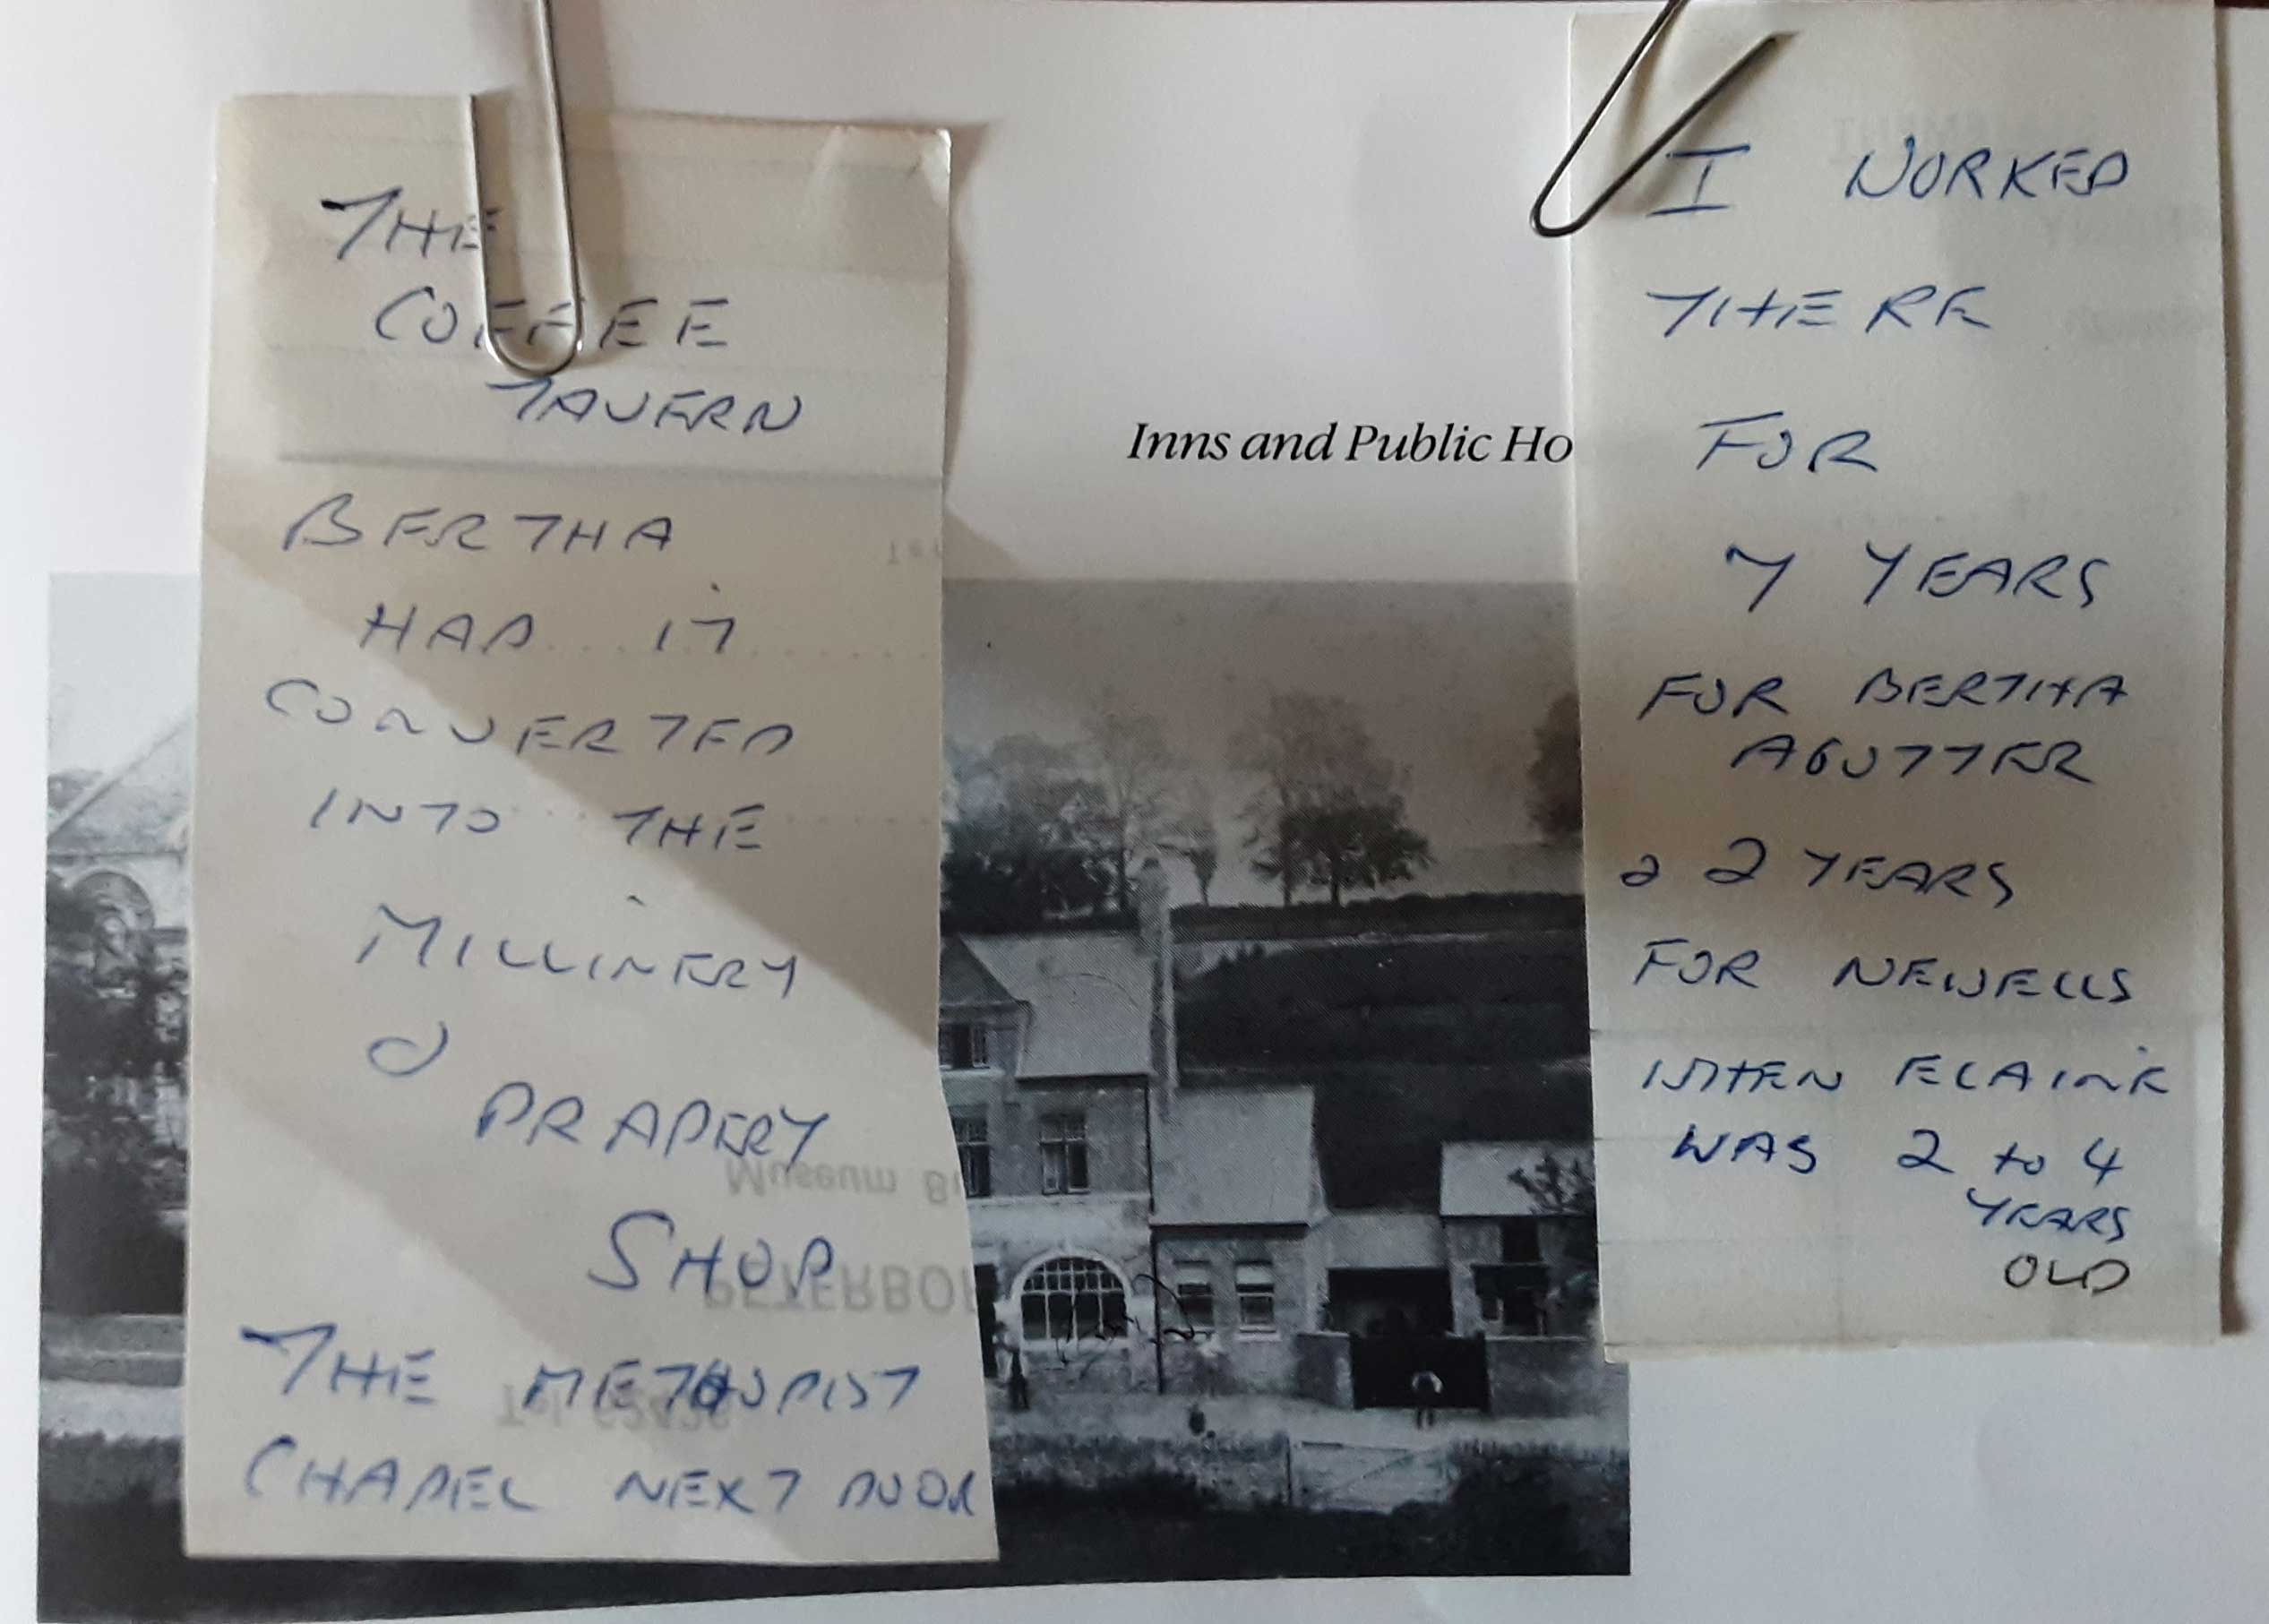 THE
COFFEE
TAVERN
BERTHA
HAD IT
CONVERTED
INTO THE
MILLINERY
&
DRAPERY
SHOP
THE METHODIST
CHAPEL NEXT DOOR
Inns and Public Ho
I WORKED
THERE
FOR
7 YEARS
FOR BERTHA
AGUTTER
& 2 YEARS
FOR NEWELLS
WHEN ELAINE
WAS 2 to 4
YEARS
OLD
Museum
PETERBOR